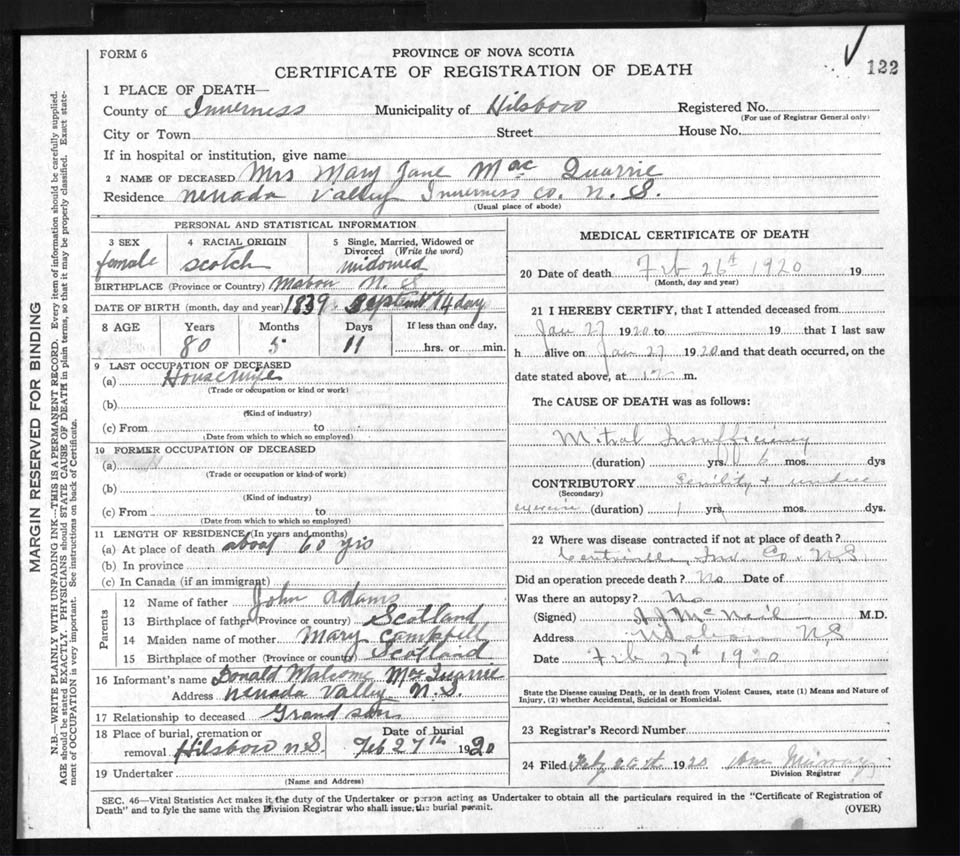 FORM 6
PROVINCE OF NOVA SCOTIA
CERTIFICATE OF REGISTRATION OF DEATH
122
1 PLACE OF DEATH—
County of Inverness Municipality of Hilsboro Registered No.
(For use of Registrar General only)
City or Town Street House No.
If in hospital or institution, give name
2 NAME OF DECEASED Mrs Mary Jane Mac Quarrie
Residence nevada Valley Inverness Co. N. S.
(Usual place of abode)
PERSONAL AND STATISTICAL INFORMATION
3 SEX 4 RACIAL ORIGIN 5 Single, Married, Widowed or
Divorced (Write the word)
female scotch widowed
BIRTHPLACE (Province or Country) Mabou N. S
DATE OF BIRTH (month, day and year) 1839 September 14 day
8 AGE Years Months Days If less than one day,
80 5 11 hrs. or min.
9 LAST OCCUPATION OF DECEASED
(a) Housewife
(Trade or occupation or kind or work)
(b)
(Kind of industry)
(c) From to
(Date from which to which so employed)
10 FORMER OCCUPATION OF DECEASED
(a)
(Trade or occupation or kind of work)
(b)
(Kind of industry)
(c) From to
(Date from which to which so employed)
11 LENGTH OF RESIDENCE (In years and months)
(a) At place of death about 60 yrs
(b) In province
(c) In Canada (if an immigrant)
Parents
12 Name of father John Adams
13 Birthplace of father (Province or country) Scotland
14 Maiden name of mother Mary Campbell
15 Birthplace of mother (Province or country) Scotland
16 Informant's name Donald Malcome Mac Quarrie
Address nevada Valley N. S.
17 Relationship to deceased Grand son
18 Place of burial, cremation or Date of burial
removal Hilsboro n S. Feb 27th 1920
19 Undertaker
(Name and Address)
MEDICAL CERTIFICATE OF DEATH
20 Date of death Feb 26th 1920 19
(Month, day and year)
21 I HEREBY CERTIFY, that I attended deceased from
Jan 27 1920 to 19 that I last saw
h alive on Jan 27 1920 and that death occurred, on the
date stated above, at 12 m.
The CAUSE OF DEATH was as follows:
Mitral Insufficiency
(duration) yrs. 6 mos. dys
CONTRIBUTORY Senility + undue
(Secondary)
exercise (duration) 1 yrs. mos. dys.
22 Where was disease contracted if not at place of death?
Centreville Inv. Co. N S
Did an operation precede death? No Date of
Was there an autopsy? No
(Signed) McNeil M.D.
Address N S
Date Feb 27th 1920
State the Disease causing Death, or in death from Violent Causes, state (1) Means and Nature of
Injury, (2) whether Accidental, Suicidal or Homicidal.
23 Registrar's Record Number
24 Filed 1920 Murray
Division Registrar
SEC. 46—Vital Statistics Act makes it the duty of the Undertaker or person acting as Undertaker to obtain all the particulars required in the "Certificate of Registration of
Death" and to fyle the same with the Division Registrar who shall issue the burial permit.
(OVER)
MARGIN RESERVED FOR BINDING
N.B.—WRITE PLAINLY WITH UNFADING INK—THIS IS A PERMANENT RECORD. Every item of information should be carefully supplied.
AGE should be stated EXACTLY. PHYSICIANS should STATE CAUSE OF DEATH in plain terms, so that it may be properly classified. Exact state-
ment of OCCUPATION is very important. See instructions on back of Certificate.